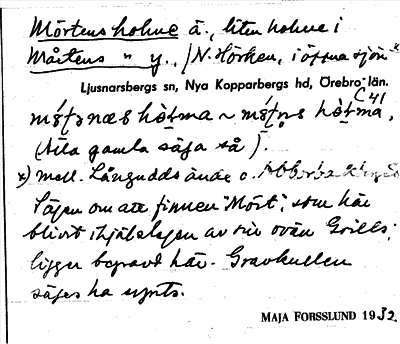 Mörtens holme ä., liten holme i
Mårtens " y., / N. Hörken, i öppna sjön x
Ljusnarsbergs sn, Nya Kopparbergs hd, Örebro län.
C 41
(Alla gamla säga så).
x) mell. Långudds ände o.
Sägen om att finnen "Mört", som här
blivit ihjälslagen av sin ovän Grills,
ligger begravd här. Gravkullen
säges ha synts.
MAJA FORSSLUND 1932.